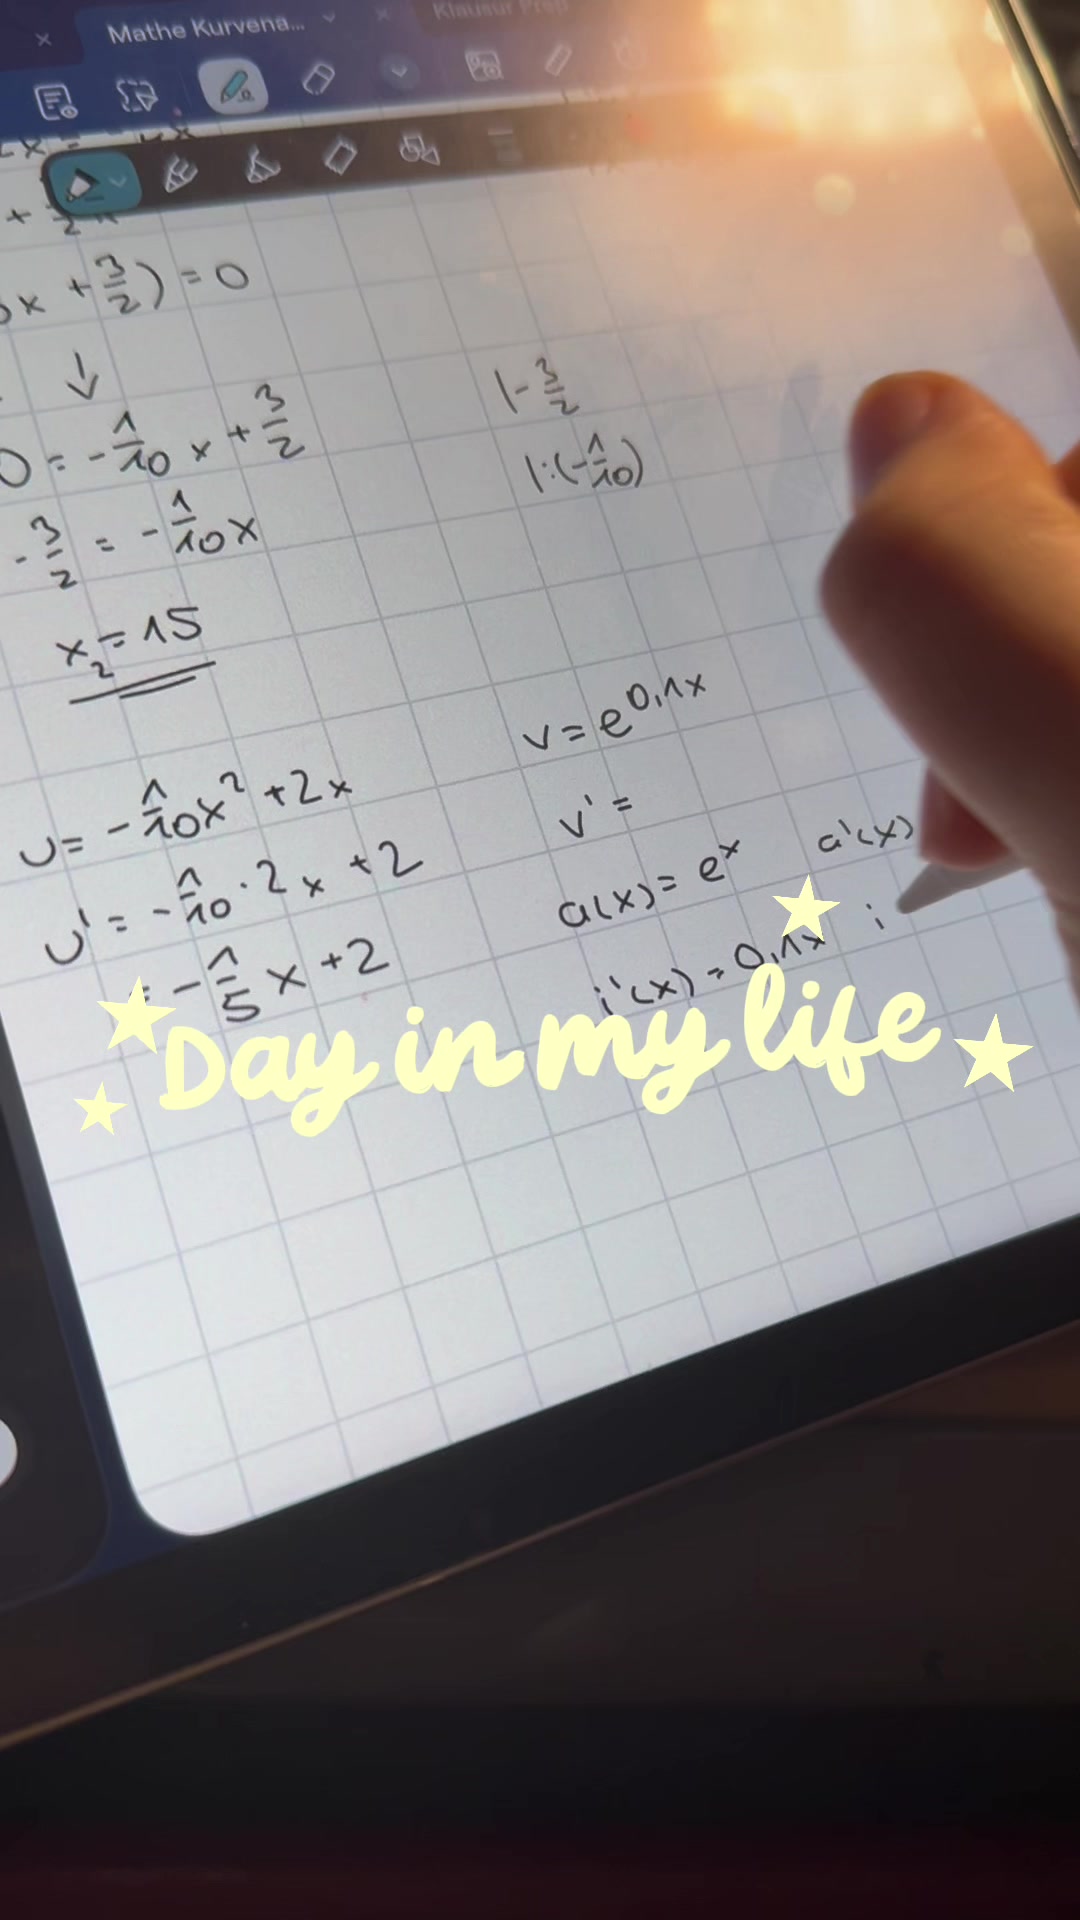 Mathe Kurvena...
Klausur Prep
x + 3/2) = 0
↓
0 = - 1/10 x + 3/2 | - 3/2
- 3/2 = - 1/10 x | : (- 1/10)
x₂ = 15
v = e^0,1x
u = - 1/10 x² + 2x
v' =
u' = - 1/10 · 2x + 2
a(x) = e^x a'(x)
= - 1/5 x + 2
i'(x) = 0,1x i
Day in my life